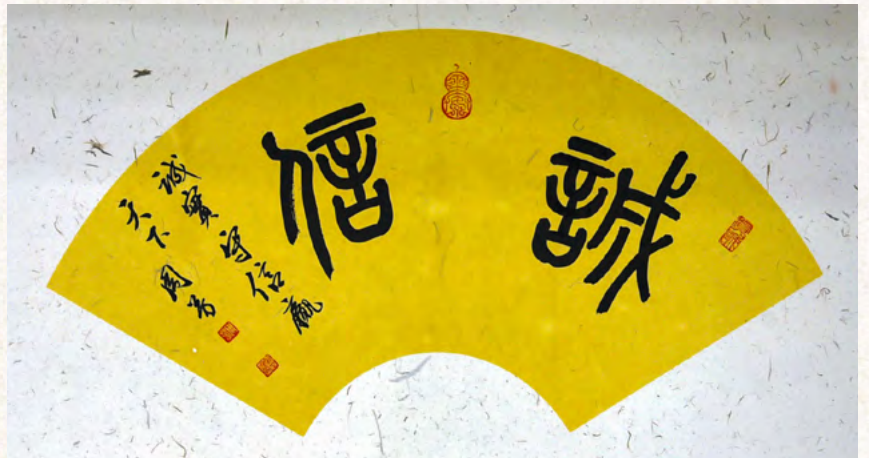 誠信
诚实守信赢
天下周芳